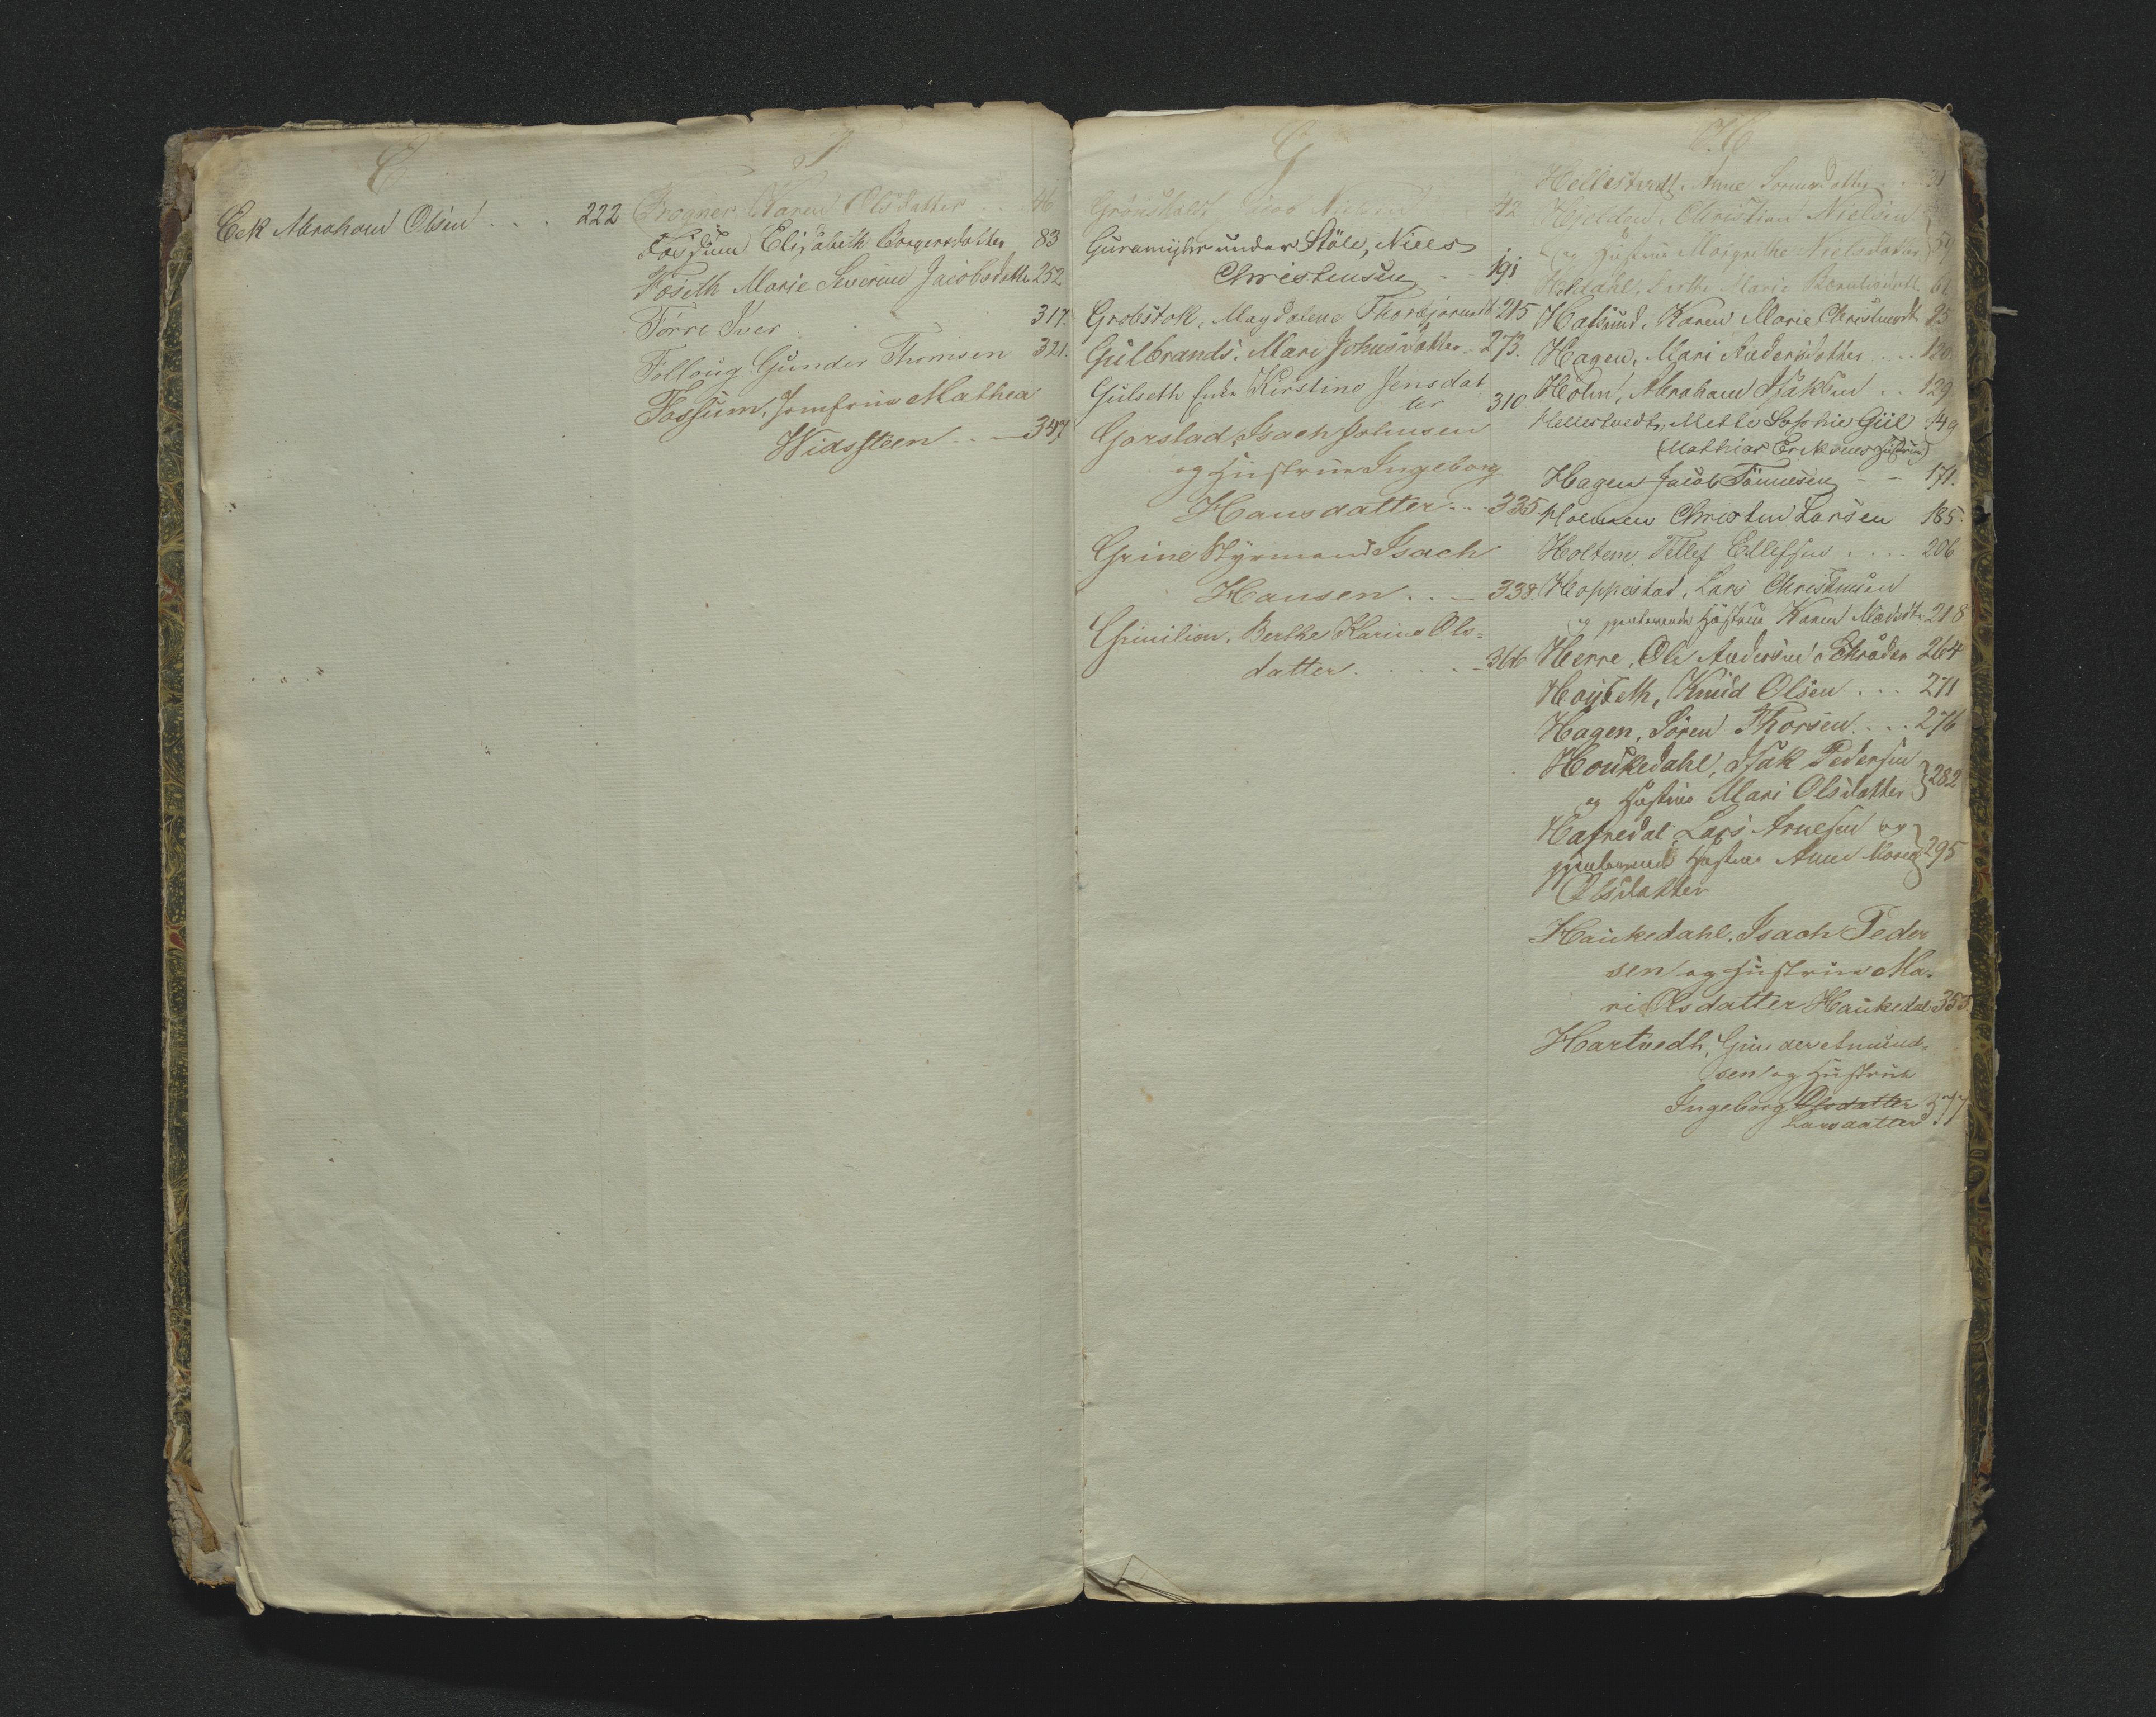 E
Eek Abraham Olsen . . . 222
F
Frogner, Karen Olsdatter . . 46
Fossum Elisabeth Borgersdatter 83
Foseth Marie Severine Jacobsdatter 252
Torre Iver 317.
Follaug Gunder Thomsen 321.
Fossum, Jomfrue Mathea
Widssteen . . — 347
G
Grönsholdt Jacob Nielsen 42
Guramyhr under Stöle, Niels
Christensen . . 191
Grobstok, Magdalene Thorbjørnsdt 215
Gulbrands. Mari Johnsdatter . . 273.
Gulseth Enke Kirstine Jensdat
ter 310.
Gorstad, Isach Johnsen
og Hustrue Ingeborg
Hansdatter . . . 335
Grine Styrmand Isach
Hansen . . — 338.
Grinilien, Berthe Karine Ols=
datter . . . . . 366
H
Hellestvedt, Anne Sorensdatter . . 31
Hjelden, Christian Nielsen
og Hustrue Margrethe Nielsdatter } 59
Holdahl, Marie 61
Halsund, Karen Marie Christensdt 95
Hagen, Mari Andersdatter . . . . 120.
Holm, Abraham Isaksen . . 129
Hellestvedt, Mette Sophie Giil 149
(Mathias Eriksens Hustrue)
Hagen Jacob Tönnesen - - 171.
Holmen Christen Larsen 185.
Holten, Tellef Ellefsen . . . . 206
Hoppestad, Lars Christensen
og gjenlevende Hustrue Karen Madsdtr 218
Herre, Ole Andersen Schräder 264
Høyseth, Knud Olsen . . . 271
Hagen, Sören Thorsen . . . 276
Houkedahl, Isak Pedersen
og Hustrue Mari Olsdatter } 282
Hafredal, Lars Arnesen og
gjenlevende Hustrue Anne Marie } 295
Olsdatter
Haukedahl, Isach Peder
sen og Hustrue Ma=
ri Olsdatter Haukedal 353.
Hartvedt, Gunder Amund=
sen og Hustrue
Ingeborg Olsdatter 377
Larsdatter